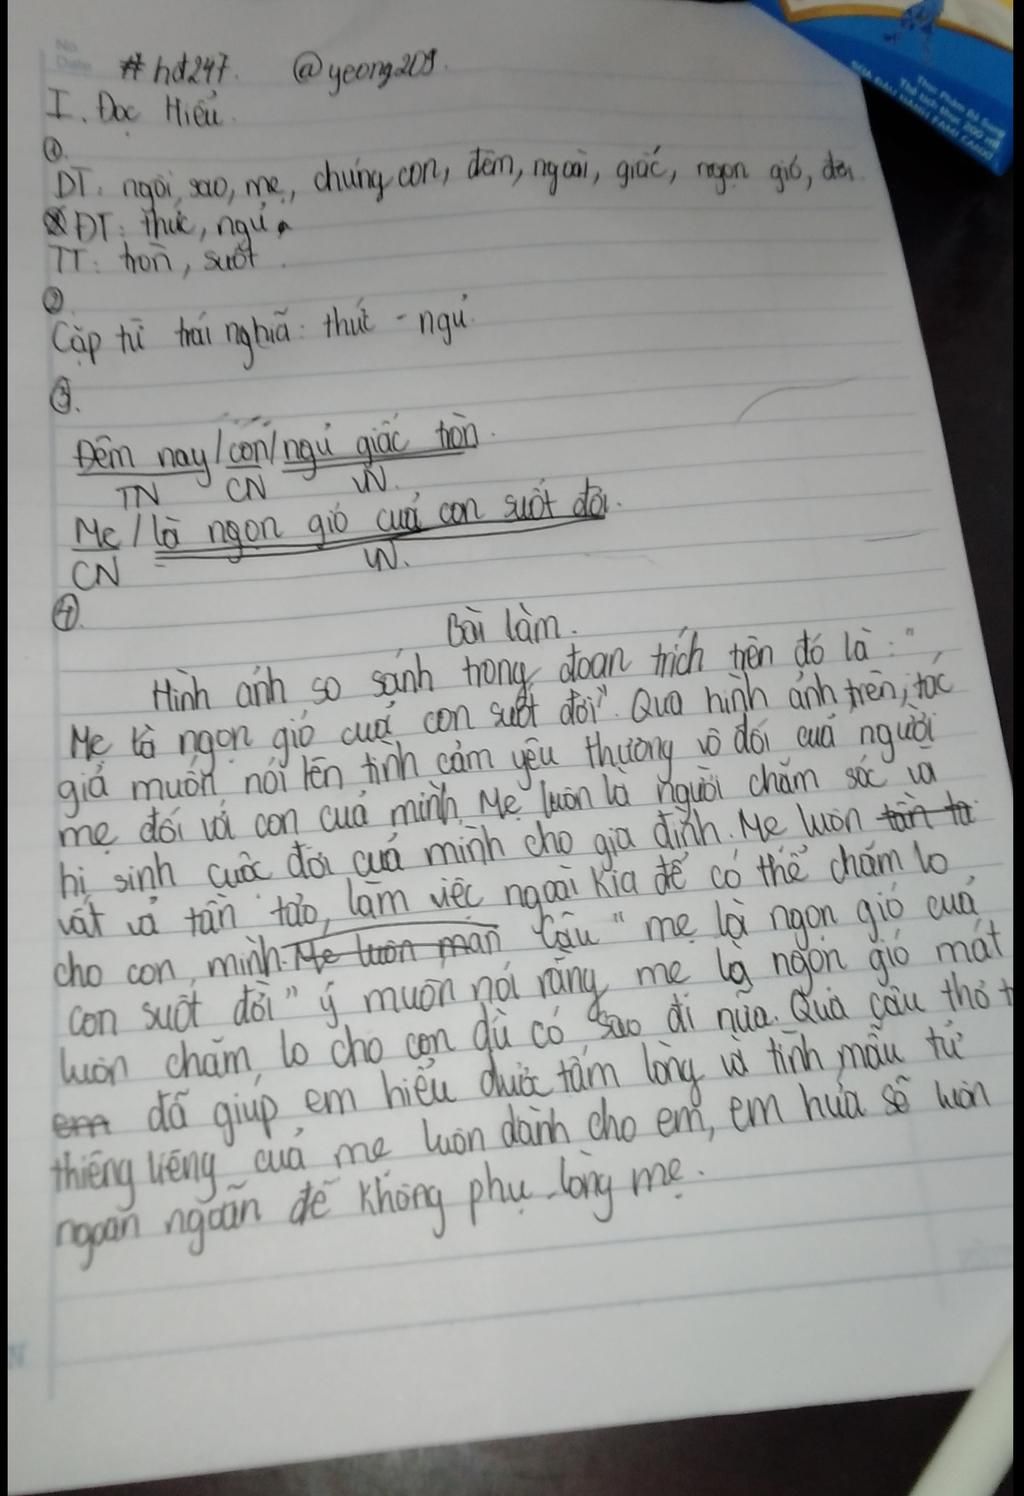 No.
Date
#hd247. @yeong209.
I. Đọc Hiểu.
①.
DT: ngôi sao, mẹ, chúng con, đêm, ngoài, giấc, ngọn gió, đời
ĐT: thức, ngủ.
TT: tròn, suốt.
②
Cặp từ trái nghĩa: thức - ngủ.
③.
Đêm nay/con/ngủ giấc tròn.
TN CN VN.
Mẹ/là ngọn gió của con suốt đời.
CN VN.
④.
Bài làm.
Hình ảnh so sánh trong đoạn trích trên đó là: "
Mẹ là ngọn gió của con suốt đời". Qua hình ảnh trên, tác
giả muốn nói lên tình cảm yêu thương vô đối của người
mẹ đối với con của mình. Mẹ luôn là người chăm sóc và
hi sinh cuộc đời của mình cho gia đình. Mẹ luôn tần tả
vất vả tần tảo, làm việc ngoài kia để có thể chăm lo
cho con mình. Mẹ luôn man Câu "mẹ là ngọn gió của
con suốt đời" ý muốn nói rằng mẹ là ngọn gió mát
luôn chăm lo cho con dù có sao đi nữa. Qua câu thơ t
em đã giúp em hiểu được tấm lòng và tình mẫu tử
thiêng liêng của mẹ luôn dành cho em, em hứa sẽ luôn
ngoan ngoãn để không phụ lòng mẹ.